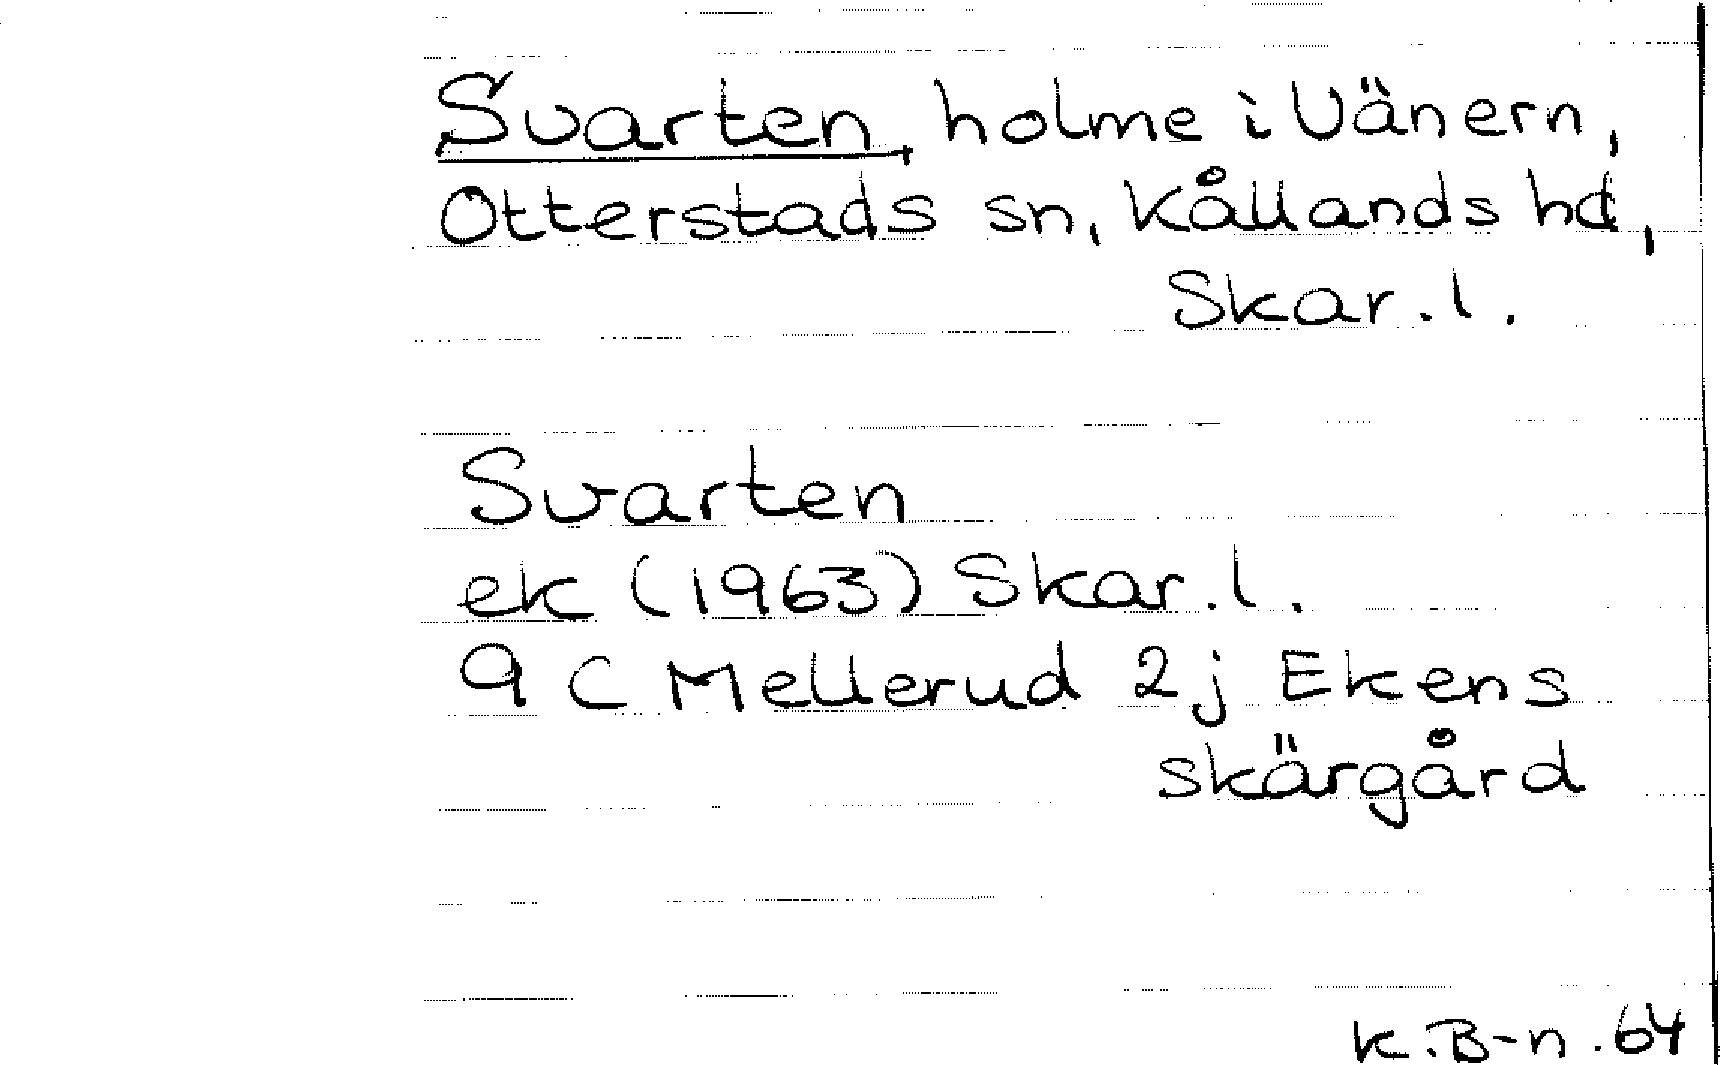 Svarten, holme i Vänern,
Otterstads sn, Kållands hd,
Skar.l.
Svarten
ek (1963) Skar.l.
9 C Mellerud 2j Ekens
skärgård
K.B-n.64